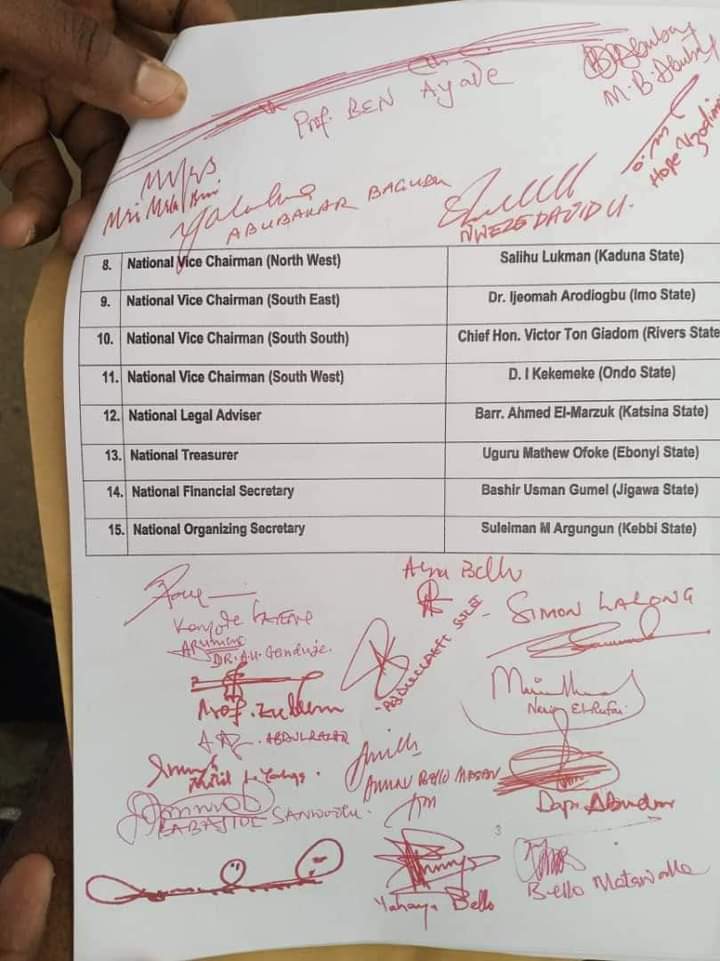 Prof. BEN AYADE
M.B. Abubak
Hope Uzodim
ABUBAKAR BAGUDU
NWEZE DAVID U.
8. National Vice Chairman (North West) Salihu Lukman (Kaduna State)
9. National Vice Chairman (South East) Dr. Ijeomah Arodiogbu (Imo State)
10. National Vice Chairman (South South) Chief Hon. Victor Ton Giadom (Rivers State
11. National Vice Chairman (South West) D. I Kekemeke (Ondo State)
12. National Legal Adviser Barr. Ahmed El-Marzuk (Katsina State)
13. National Treasurer Uguru Mathew Ofoke (Ebonyi State)
14. National Financial Secretary Bashir Usman Gumel (Jigawa State)
15. National Organizing Secretary Suleiman M Argungun (Kebbi State)
Bello
SIMON LALONG
DR. A.U. Ganduje.
ABDULLAHI SULE
Prof. Zulum
El-Rufai
ABDULRAZAK
AMINU BELLO MASARI
BABAJIDE SANWOOLU.
3
Yahaya Bello
Bello Matawalle